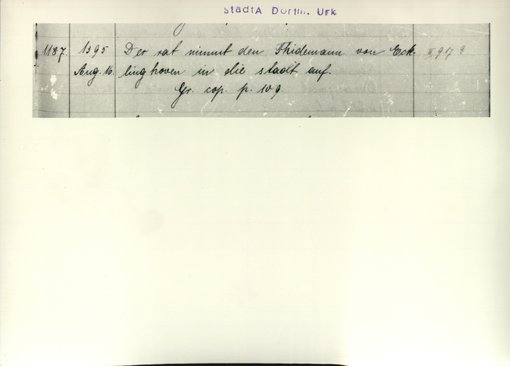 StadtA Dortm. Urk
1187. 1395 Der rat nimmt den Thidemann von Eck-
Aug. 16. linghoven in die stadt auf.
Gr. cop. p. 109